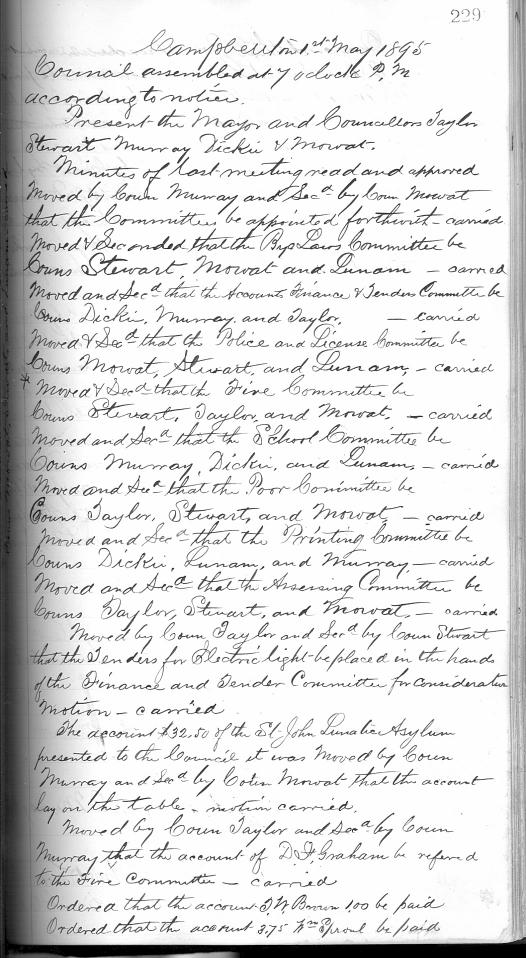 229
Campbellton 1.st May 1895
Council assembled at 7 oclock P.M
according to notice.
Present the Mayor and Councillors Taylor
Stewart Murray Dickie & Mowat.
Minutes of last meeting read and approved
Moved by Coun Murray and Secd by Coun Mowat
that the Committees be appointed forthwith - carried
Moved & Seconded that the Bye Laws Committee be
Couns Stewart, Mowat and Lunam - carried
Moved and Secd that the Accounts, Finance & Tenders Committee be
Couns Dickie, Murray, and Taylor, - carried
Moved & Secd that the Police and License Committee be
Couns Mowat, Stewart, and Lunam, - carried
* Moved & Secd that the Fire Committee be
Couns Stewart, Taylor, and Mowat, - carried
Moved and Secd that the School Committee be
Couns Murray, Dickie, and Lunam, - carried
Moved and Secd that the Poor Committee be
Couns Taylor, Stewart, and Mowat - carried
Moved and Secd that the Printing Committee be
Couns Dickie, Lunam, and Murray, - carried
Moved and Secd that the Assessing Committee be
Couns Taylor, Stewart, and Mowat, - carried
Moved by Coun Taylor and Secd by Coun Stewart
that the Tenders for Electric light be placed in the hands
of the Finance and Tender Committee for consideration
Motion - carried
The account $32.50 of the St. John Lunatic Asylum
presented to the Council it was Moved by Coun
Murray and Secd by Coun Mowat that the account
lay on the table - motion carried.
Moved by Coun Taylor and Secd by Coun
Murray that the account of D. F Graham be referred
to the Fire Committee - carried
Ordered that the account T. W. Brown 1.00 be paid
Ordered that the account 3.75 Wm Sproul be paid